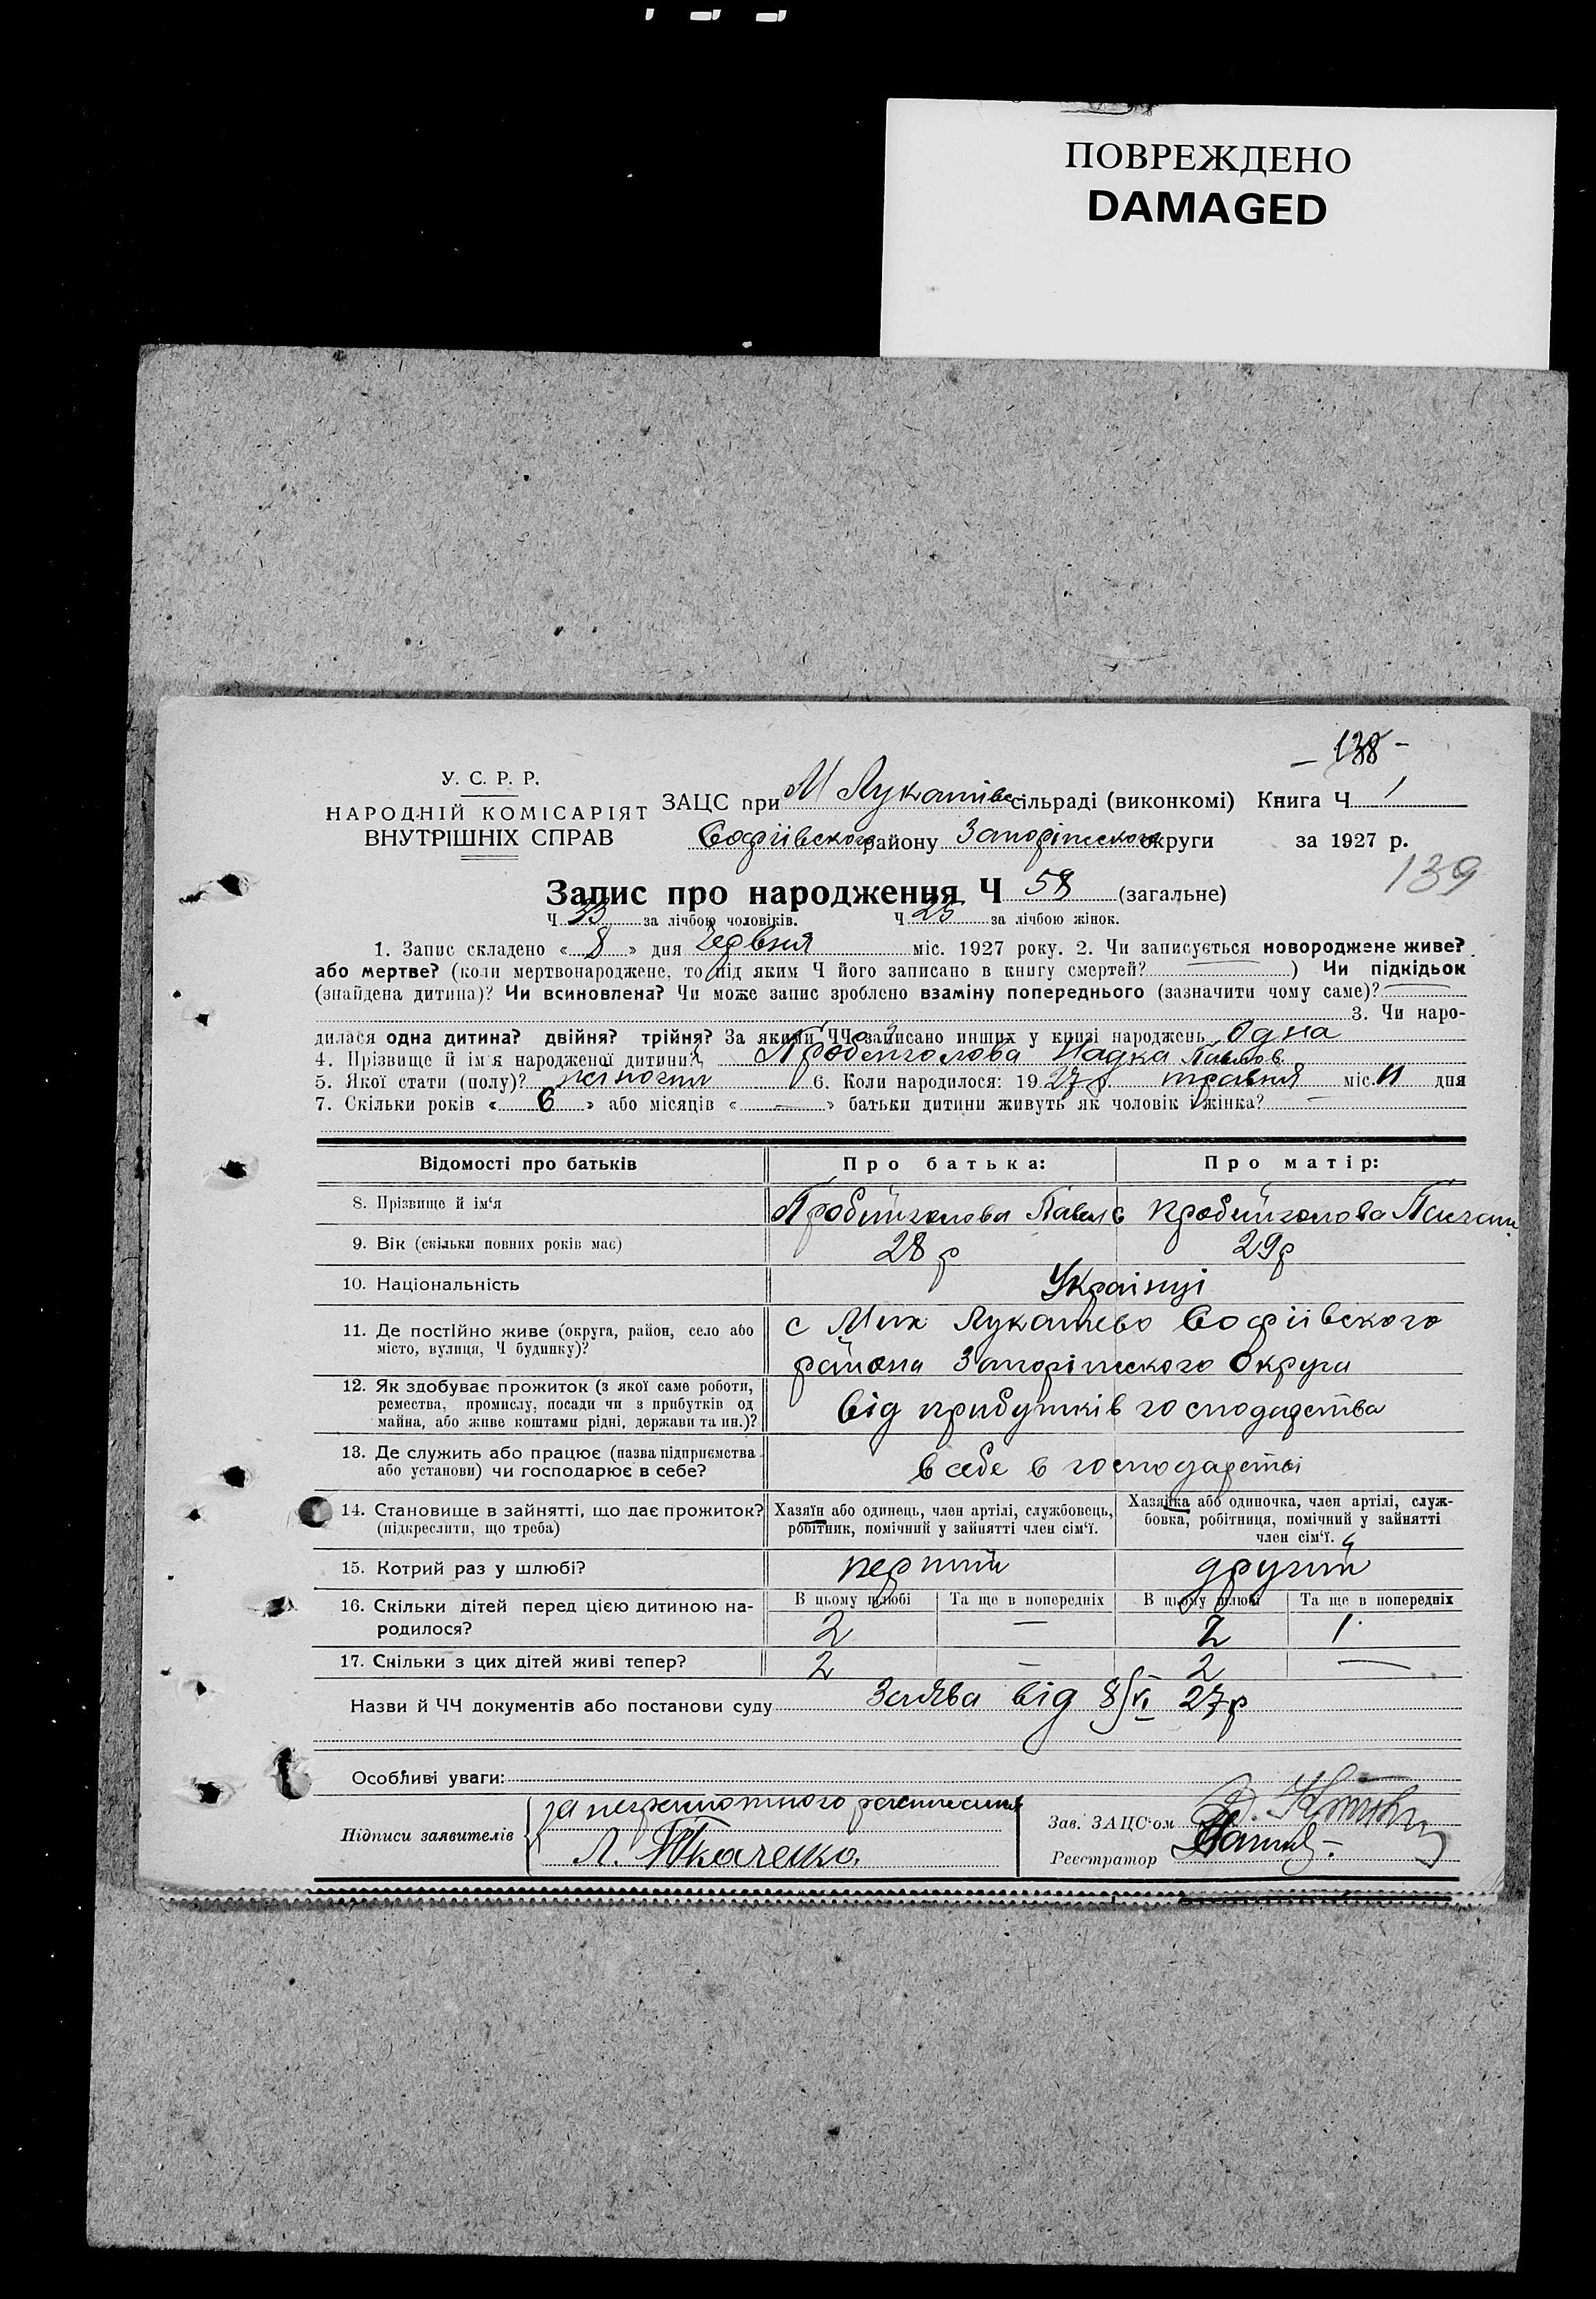 ПОВРЕЖДЕНО
DAMAGED
– 138 –
У. С. Р. Р.
НАРОДНІЙ КОМІСАРІЯТ
ВНУТРІШНІХ СПРАВ
ЗАЦС при М Лукашівс сільраді (виконкомі) Книга Ч 1
Софіївского району Запоріжского округи за 1927 р.
139
Запис про народження Ч 58 (загальне)
Ч 33 за лічбою чоловіків. Ч 25 за лічбою жінок.
1. Запис складено « 8 » дня червня міс. 1927 року. 2. Чи записується новороджене живе?
або мертве? (коли мертвонароджене, то під яким Ч його записано в книгу смертей? —) Чи підкідьок
(знайдена дитина)? Чи всиновлена? Чи може запис зроблено взаміну попереднього (зазначити чому саме)? —
3. Чи наро-
дилася одна дитина? двійня? трійня? За якими ЧЧ записано инших у книзі народжень одна
4. Прізвище й ім'я народженої дитини? Пробийголова Надка Павлов
5. Якої стати (полу)? жіночит 6. Коли народилося: 1927 р. травня міс. 11 дня
7. Скільки років « 6 » або місяців « — » батьки дитини живуть як чоловік і жінка? —
Відомості про батьків
Про батька:
Про матір:
8. Прізвище й ім'я Пробийголова Павло Пробийголова
9. Вік (скільки повних років має) 28 р 29 р
10. Національність Українці
11. Де постійно живе (округа, район, село або
місто, вулиця, Ч будинку)?
с Мих Лукашево Софіівского
района Запоріжского Округа
12. Як здобуває прожиток (з якої саме роботи,
ремества, промислу, посади чи з прибутків од
майна, або живе коштами рідні, держави та ин.)?
від прибутків господарства
13. Де служить або працює (назва підприємства
або установи) чи господарює в себе?
в себе в господарстві
14. Становище в зайнятті, що дає прожиток?
(підкреслити, що треба)
Хазяїн або одинець, член артілі, службовець,
робітник, помічний у зайнятті член сім'ї.
Хазяйка або одиночка, член артілі, служ-
бовка, робітниця, помічний у зайнятті
член сім'ї.
15. Котрий раз у шлюбі? перший другий
16. Скільки дітей перед цією дитиною на-
родилося?
В цьому шлюбі Та ще в попередніх В цьому шлюбі Та ще в попередніх
2 — 2 1
17. Скільки з цих дітей живі тепер? 2 — 2 —
Назви й ЧЧ документів або постанови суду Заява від 8/VI 27 р
Особливі уваги:
Підписи заявителів
за неграмотного расписался
Л. Ткаченко
Зав. ЗАЦС'ом
Реєстратор